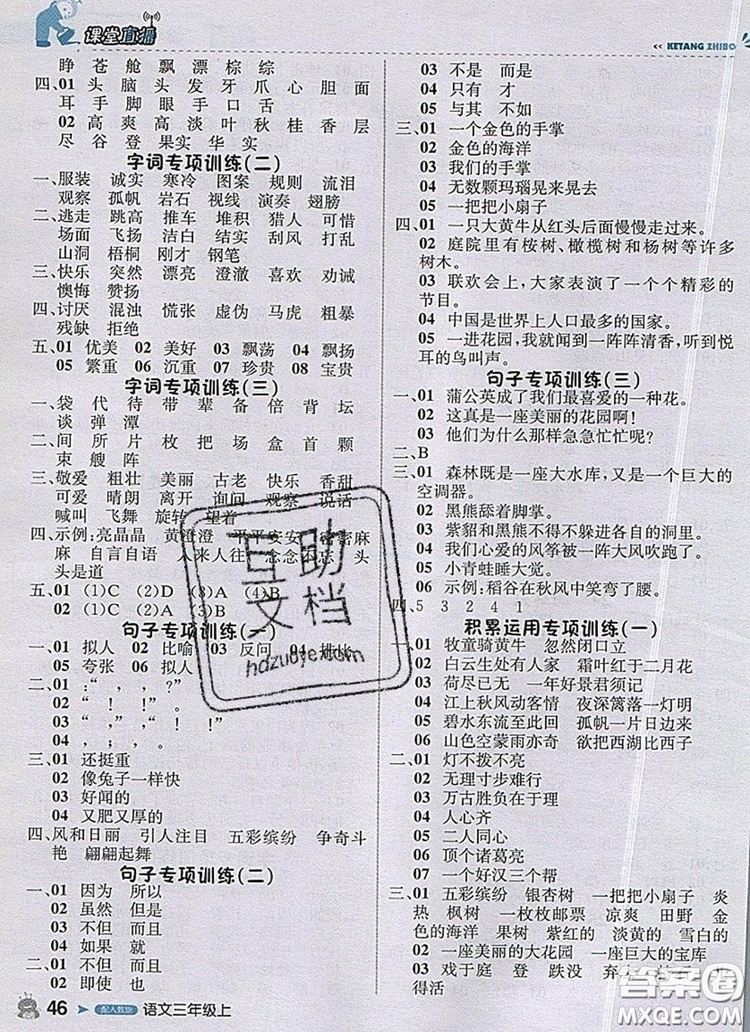 课堂直播
<< KETANG ZHIBO
睁 苍 舱 飘 漂 棕 综
四、01 头 脑 头 发 牙 爪 心 胆 面
耳 手 脚 眼 手 口 舌
02 高 爽 高 淡 叶 秋 桂 香 层
尽 谷 登 果实 华 实
字词专项训练(二)
一、服装 诚实 寒冷 图案 规则 流泪
观察 孤帆 岩石 视线 演奏 翅膀
二、逃走 跳高 推车 堆积 猎人 可惜
场面 飞扬 洁白 结实 刮风 打乱
山洞 梧桐 刚才 钢笔
三、快乐 突然 漂亮 澄澈 喜欢 劝诫
懊悔 赞扬
四、讨厌 混浊 慌张 虚伪 马虎 粗暴
残缺 拒绝
五、01 优美 02 美好 03 飘荡 04 飘扬
05 繁重 06 沉重 07 珍贵 08 宝贵
字词专项训练(三)
一、袋 代 待 带 辈 备 倍 背 坛
谈 弹 潭
二、间 所 片 枚 把 场 盒 首 颗
束 艘 阵
三、敬爱 粗壮 美丽 古老 快乐 香甜
可爱 晴朗 离开 询问 观察 说话
喊叫 飞舞 旋转 望着
四、示例:亮晶晶 黄澄澄 平平安安 密密麻
麻 自言自语 人来人往 念念不忘 头
头是道
五、01 (1)C (2)D (3)A (4)B
02 (1)C (2)A (3)B
句子专项训练(一)
一、01 拟人 02 比喻 03 反问 04 排比
05 夸张 06 拟人
二、01 :“,”,“?”
02 “! !”
03 “,”,“! !”
04 ,;,;。
三、01 还挺重
02 像兔子一样快
03 好闻的
04 又肥又厚的
四、风和日丽 引人注目 五彩缤纷 争奇斗
艳 翩翩起舞
句子专项训练(二)
一、01 因为 所以
02 虽然 但是
03 不但 而且
04 如果 就
二、01 不但 而且
02 即使 也
03 不是 而是
04 只有 才
05 与其 不如
三、01 一个金色的手掌
02 金色的海洋
03 我们的手掌
04 无数颗玛瑙晃来晃去
05 一把把小扇子
四、01 一只大黄牛从红头后面慢慢走过来。
02 庭院里有桉树、橄榄树和杨树等许多
树木。
03 联欢会上,大家表演了一个个精彩的
节目。
04 中国是世界上人口最多的国家。
05 一进花园,我就闻到一阵阵清香,听到悦
耳的鸟叫声。
句子专项训练(三)
一、01 蒲公英成了我们最喜爱的一种花。
02 这真是一座美丽的花园啊!
03 他们为什么那样急急忙忙呢?
二、B
三、01 森林既是一座大水库,又是一个巨大的
空调器。
02 黑熊舔着脚掌。
03 紫貂和黑熊不得不躲进各自的洞里。
04 我们心爱的风筝被一阵大风吹跑了。
05 小青蛙睡大觉。
06 示例:稻谷在秋风中笑弯了腰。
四、5 3 2 4 1
积累运用专项训练(一)
一、01 牧童骑黄牛 忽然闭口立
02 白云生处有人家 霜叶红于二月花
03 荷尽已无 一年好景君须记
04 江上秋风动客情 夜深篱落一灯明
05 碧水东流至此回 孤帆一片日边来
06 山色空蒙雨亦奇 欲把西湖比西子
二、01 灯不拨不亮
02 无理寸步难行
03 万古胜负兵家
04 人心齐
05 二人同心
06 顶个诸葛亮
07 一个好汉三个帮
三、01 五彩缤纷 银杏树 一把把小扇子 炎
热 枫树 一枚枚邮票 凉爽 田野 金
色的海洋 果树 紫红的 淡黄的 雪白的
02 一座美丽的大花园 一座巨大的宝库
03 戏于庭 登 跌没 弃
得活
互助文档
hdzuoye.com
答案圈
MXQE.COM
46 配人教版 语文三年级上